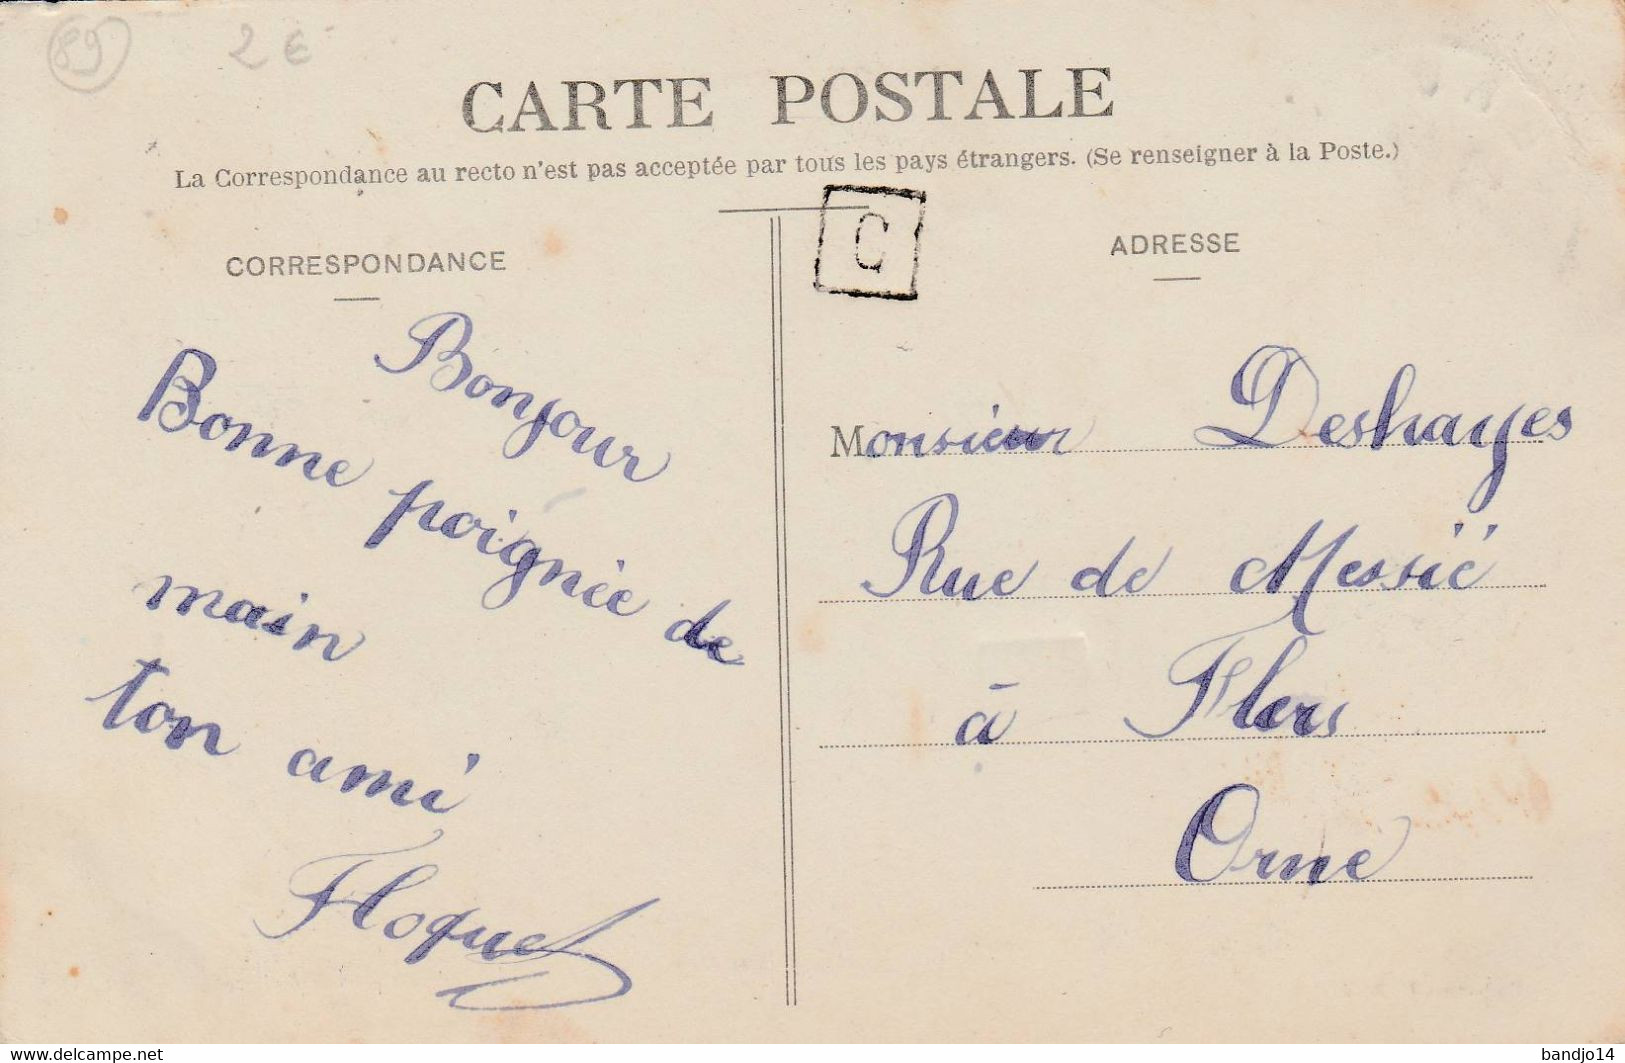 89
2 €
CARTE POSTALE
La Correspondance au recto n'est pas acceptée par tous les pays étrangers. (Se renseigner à la Poste.)
C
CORRESPONDANCE
Bonjour
Bonne poignée de
main
ton ami
Floquet
ADRESSE
Monsieur Deshayes
Rue de Messié
à Flers
Orne
www.delcampe.net
bandjo14